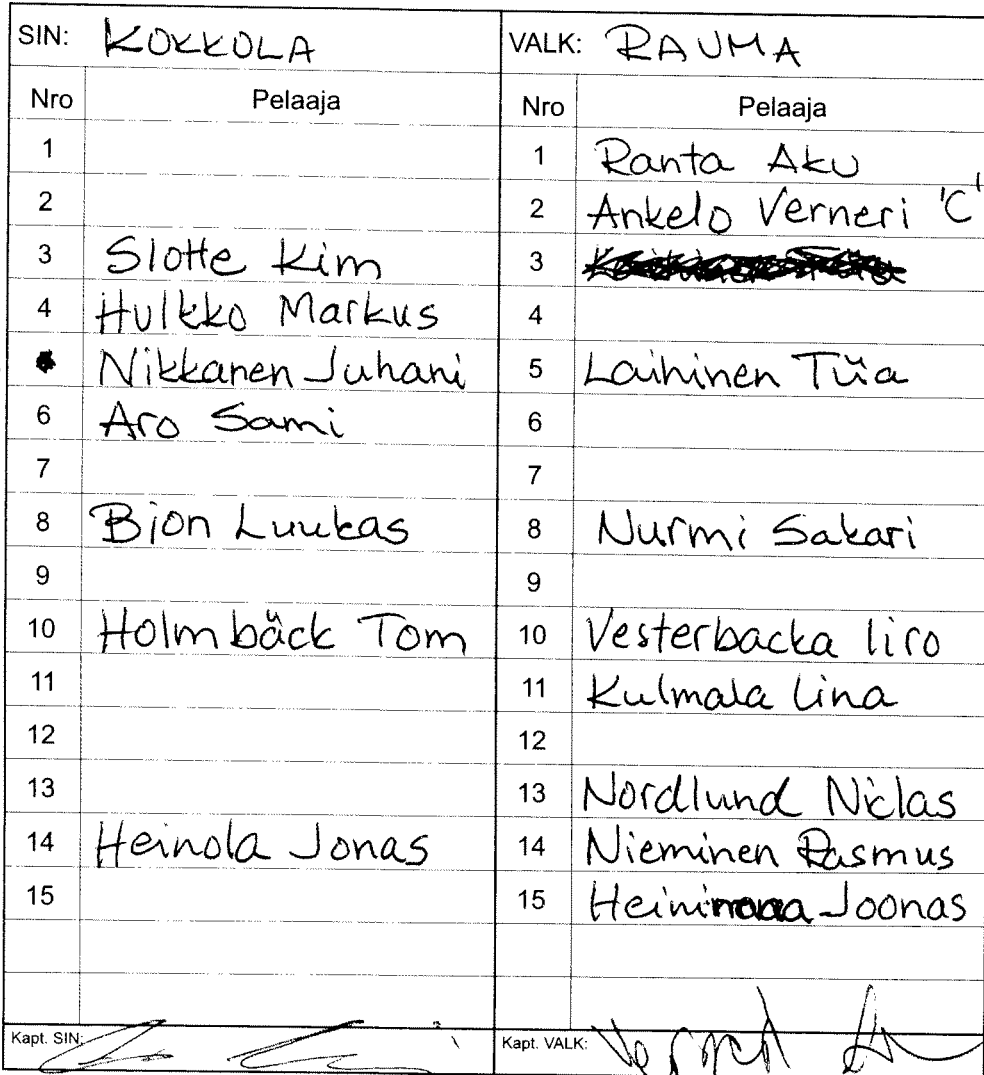 SIN: KOKKOLA
VALK: RAUMA
Nro Pelaaja
Nro Pelaaja
1
1 Ranta Aku
2
2 Ankelo Verneri 'C'
3 Slotte Kim
3
4 Hulkko Markus
4
Nikkanen Juhani
5 Laihinen Tiia
6 Aro Sami
6
7
7
8 Bion Luukas
8 Nurmi Sakari
9
9
10 Holmbäck Tom
10 Vesterbacka Iiro
11
11 Kulmala Iina
12
12
13
13 Nordlund Niclas
14 Heinola Jonas
14 Nieminen Rasmus
15
15 Heinimaa Joonas
Kapt. SIN:
Kapt. VALK: